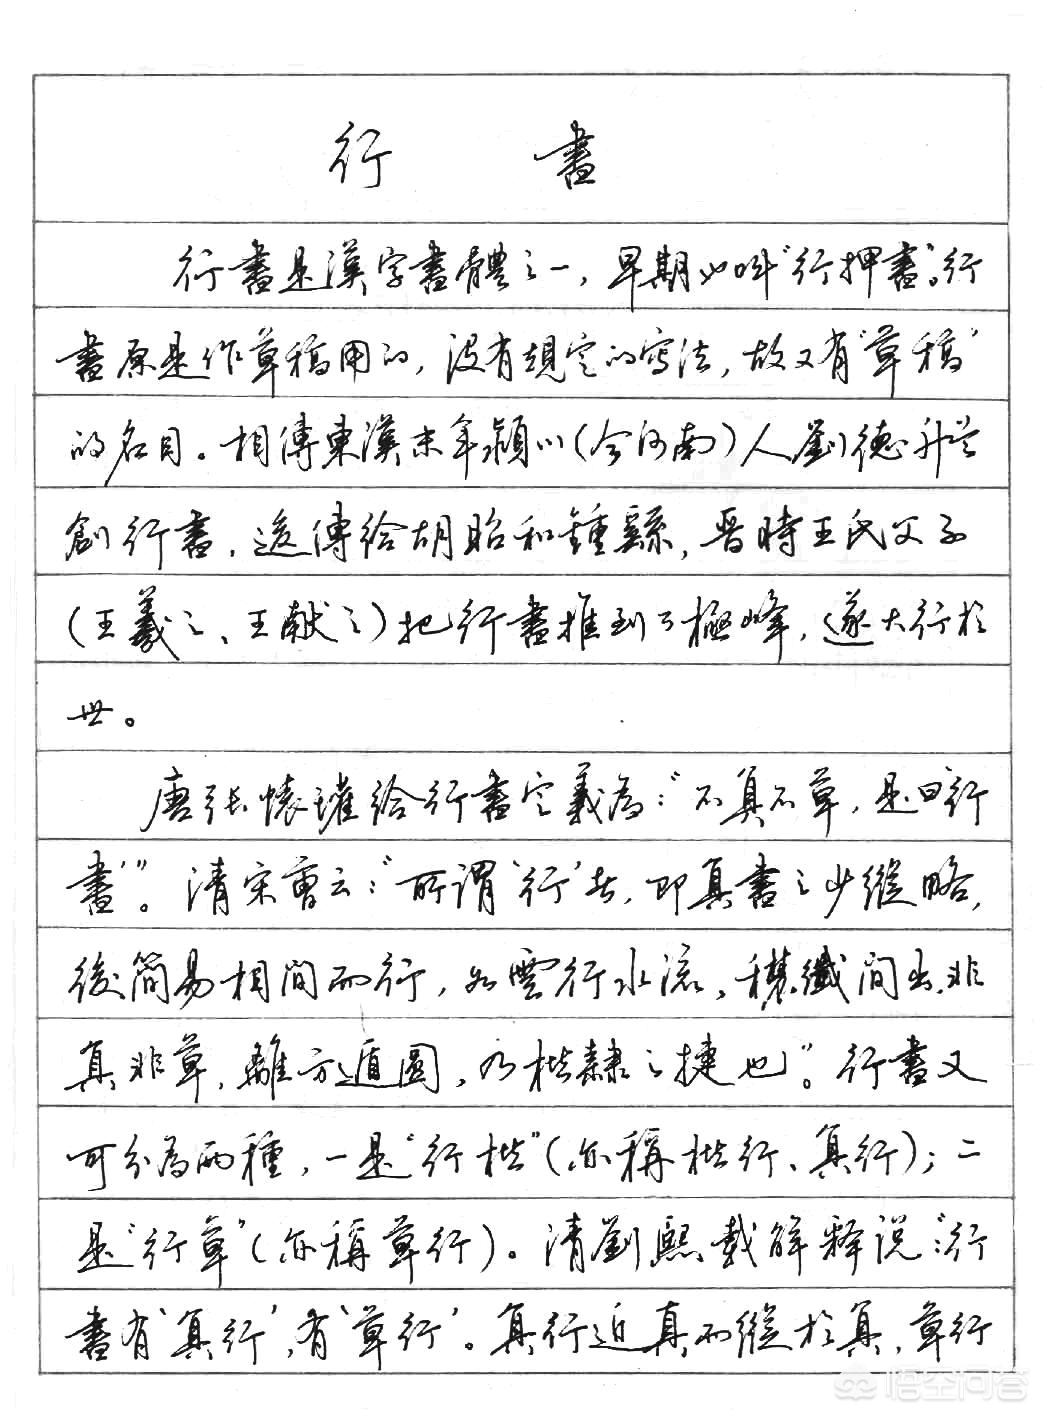 行書
行書是漢字書體之一，早期也叫“行押書”。行
書原是作草稿用的，没有規定的寫法，故又有“草稿”
的名目。相傳東漢末年潁川（今河南）人劉德升首
創行書，後傳給胡昭和鍾繇，晋時王氏父子
（王羲之、王献之）把行書推到了極峰，遂大行於
世。
唐張懷瓘給行書定義為：“不真不草，是曰‘行
書’”。清宋曹云：“所謂‘行’者，即真書之少縱略，
後簡易相間而行，如雲行水流，穠纖間出，非
真非草，離方遁圓，乃楷隸之捷也”。行書又
可分為兩種，一是“行楷”（亦稱楷行、真行）；二
是“行草”（亦稱草行）。清劉熙載解釋説：“行
書有‘真行’，有‘草行’。真行近真而縱於真，草行
悟空问答